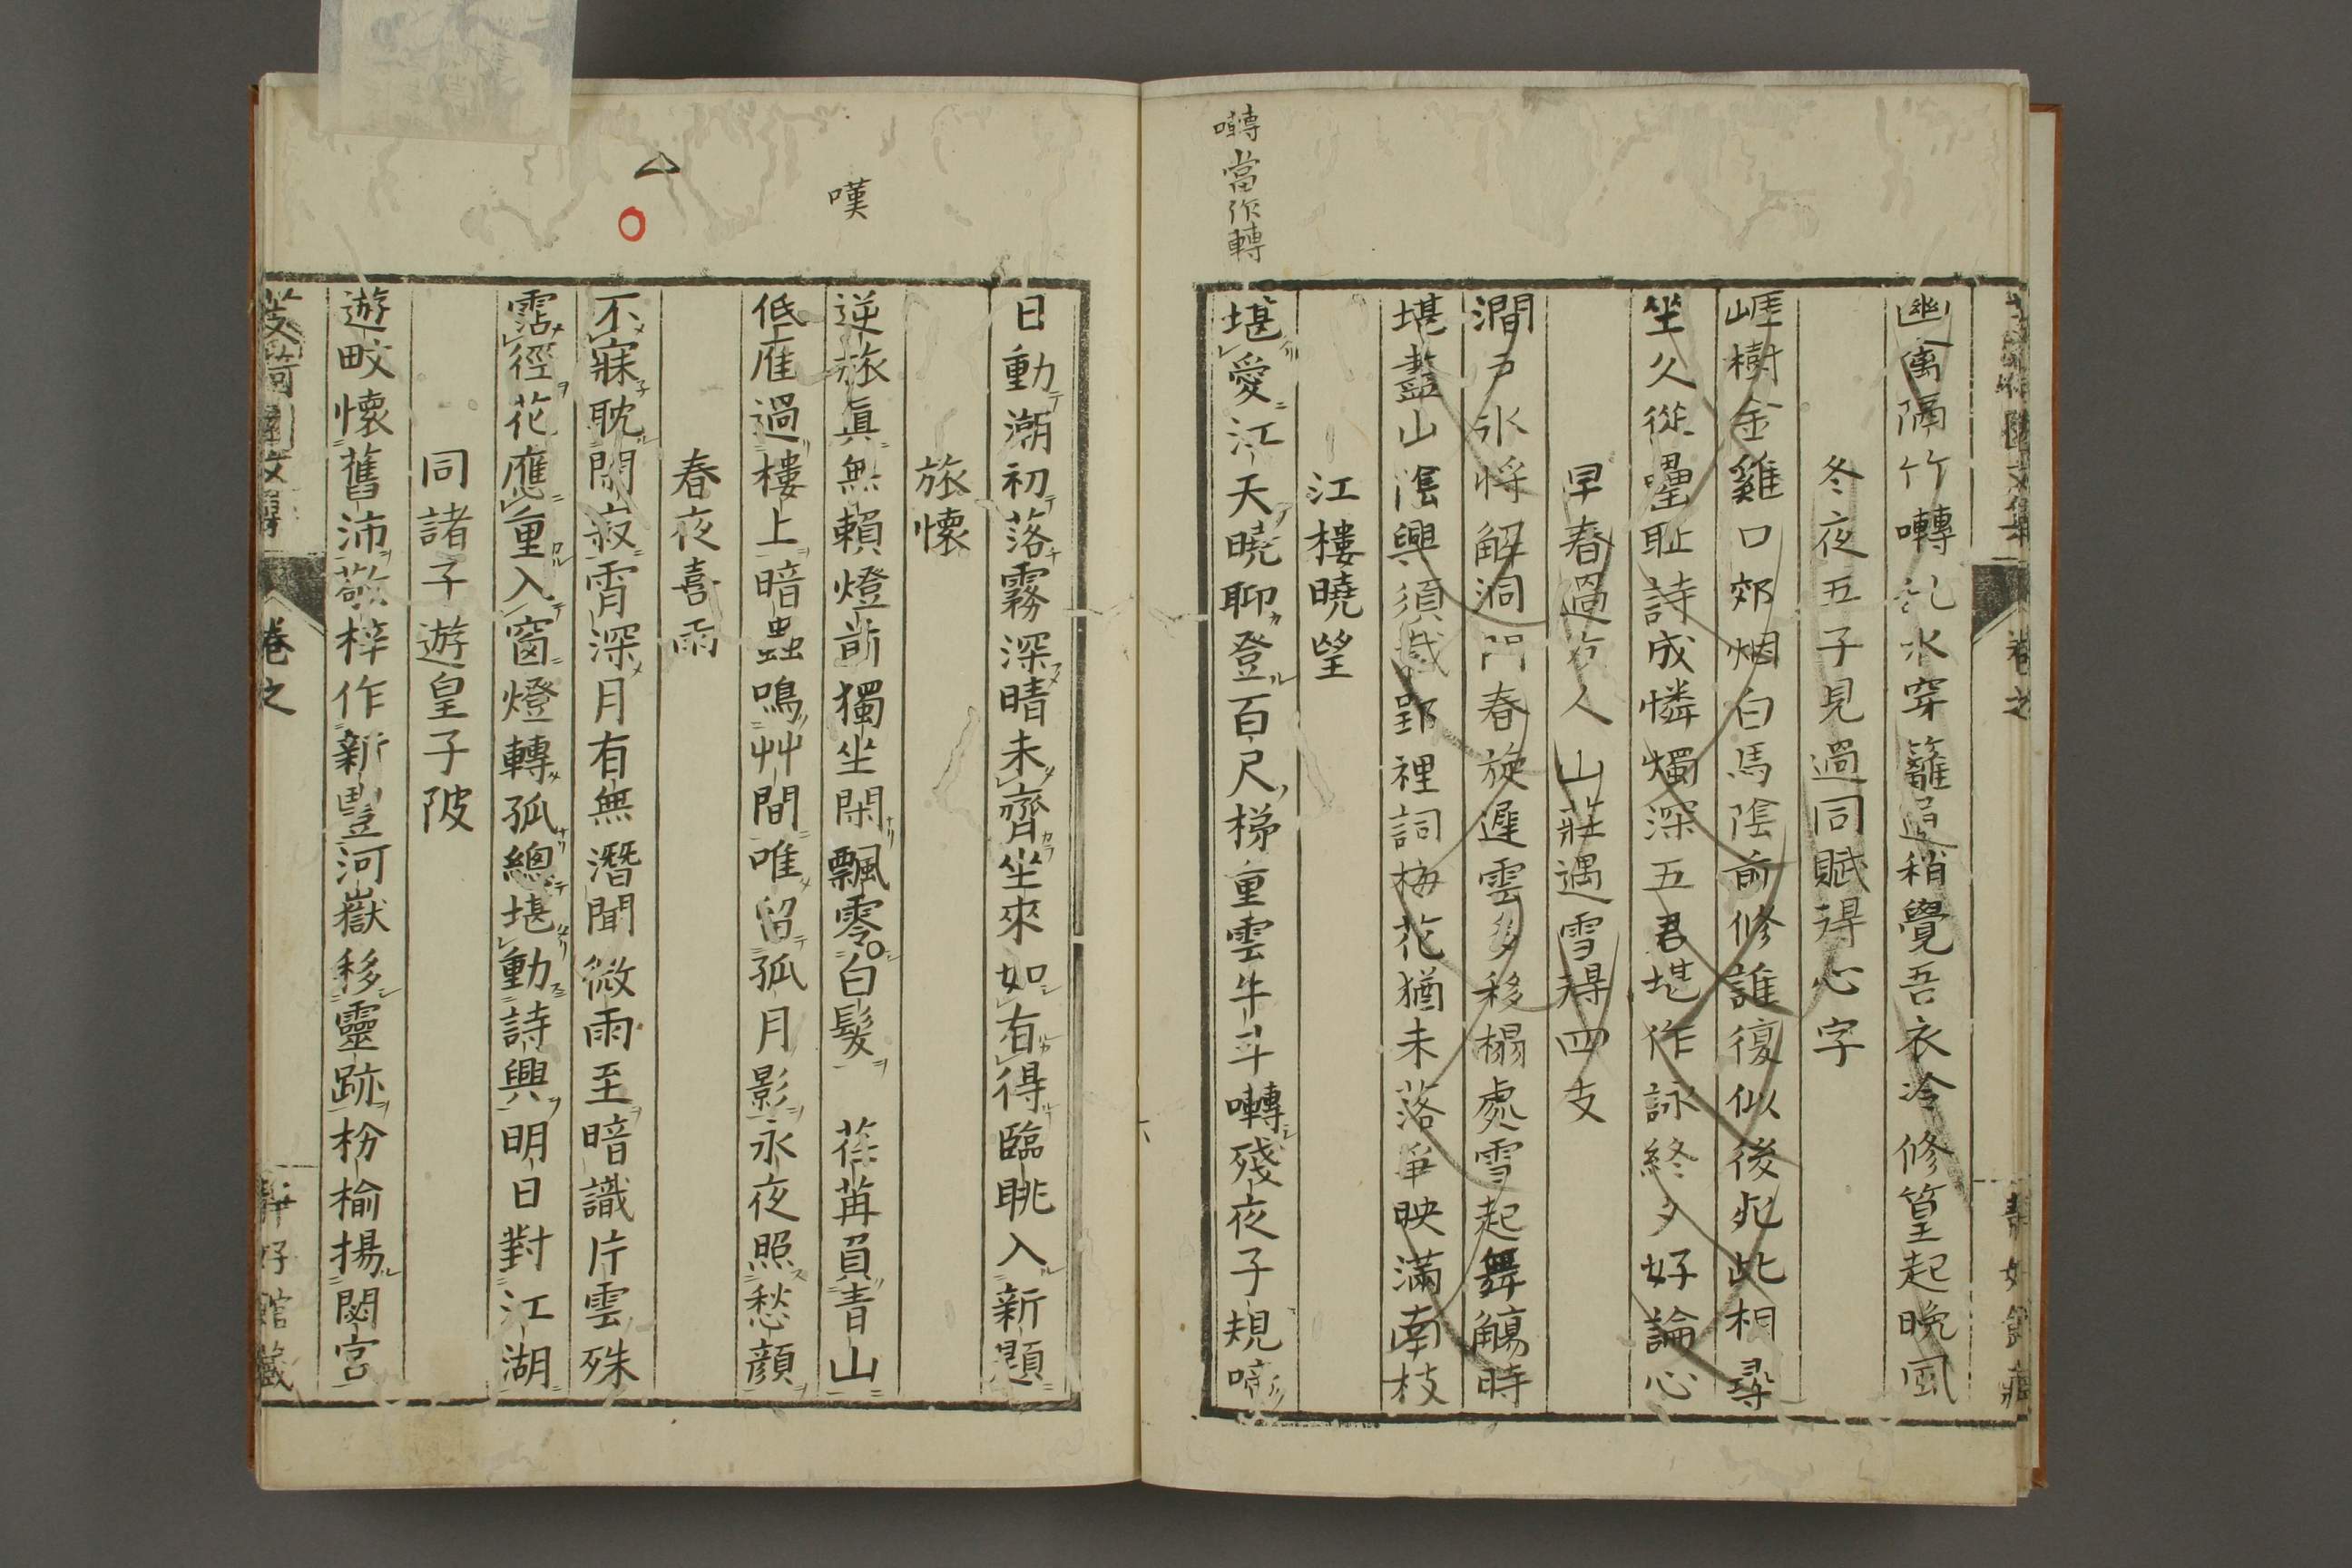 囀當作轉
幽禽隔竹囀乱水穿籬過稍覺吾衣冷修篁起晩風
冬夜五子見過同賦得心字
崕樹金雞口郊烟白馬陰前修誰復似後死此相尋
坐久從罍耻詩成憐燭深五君堪作詠終夕好論心
早春過方人山莊遇雪得四支
澗戸氷将解洞門春旋遲雲多移榻處雪起舞觴時
堪盡山陰興須裁郢裡詞梅花猶未落爭映滿南枝
江樓曉望
堪愛江天曉聊登百尺梯重雲牛斗囀殘夜子規啼
嘆
日動潮初落霧深晴未齊坐來如有得臨眺入新題
旅懷
逆旅眞無賴燈前獨坐閑飄零白髮 荏苒負青山
低雁過樓上暗蟲鳴艸間唯留孤月影永夜照愁顔
春夜喜雨
不寐耽閑寂宵深月有無潛聞微雨至暗識片雲殊
霑徑花應重入窗燈轉孤總堪動詩興明日對江湖
同諸子遊皇子陂
遊畋懷舊沛敬梓作新豐河嶽移靈跡枌榆揚閟宮
芰荷園文集 卷之 靜好館藏